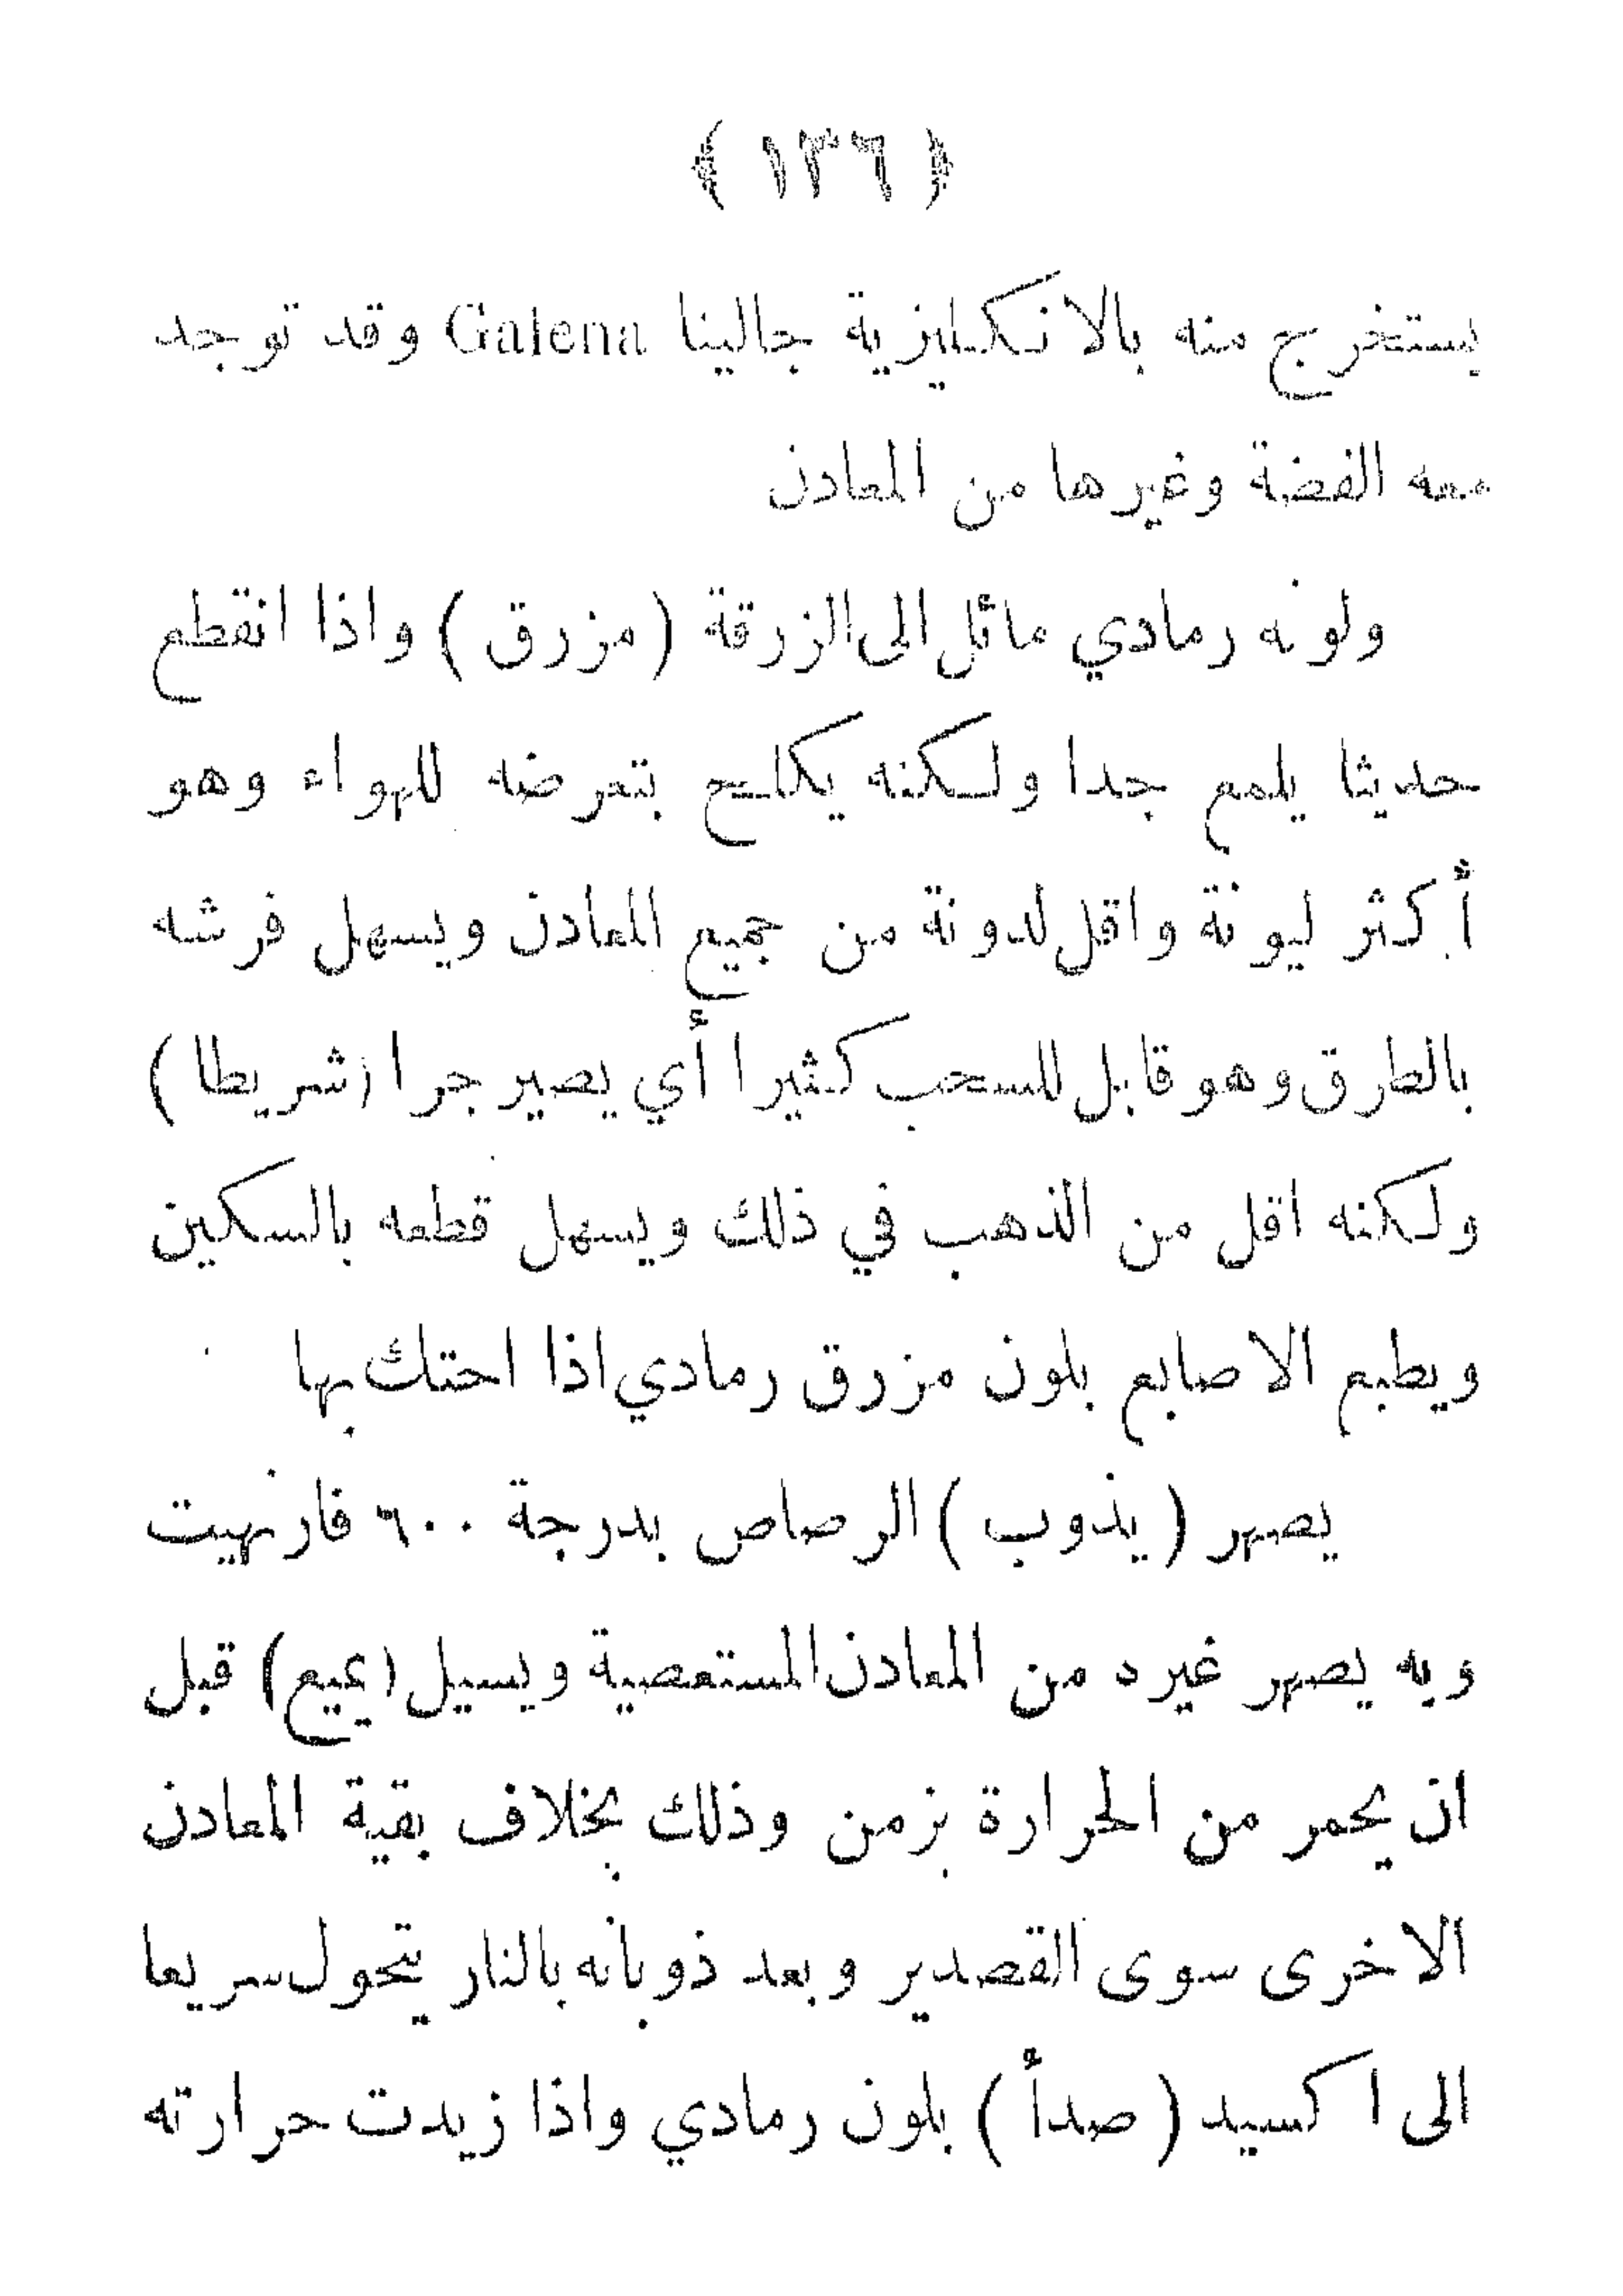 ﴿ ١٣٦ ﴾
يستخرج منه بالانكليزية جالينا Galena وقد توجد
معه الفضة وغيرها من المعادن
ولونه رمادي مائل الى الزرقة ( مزرق ) واذا انقطع
حديثا يلمع جدا ولكنه يكلح بتعرضه للهواء وهو
أكثر ليونة واقل لدونة من جميع المعادن ويسهل فرشه
بالطرق وهو قابل للسحب كثيرا أي يصير جرا (شريطا )
ولكنه اقل من الذهب في ذلك ويسهل قطعه بالسكين
ويطبع الاصابع بلون مزرق رمادي اذا احتك بها
يصهر ( يذوب ) الرصاص بدرجة ٦٠٠ فارنهيت
وبه يصهر غيره من المعادن المستعصية ويسيل (يميع) قبل
ان يحمر من الحرارة بزمن وذلك بخلاف بقية المعادن
الاخرى سوى القصدير وبعد ذوبانه بالنار يتحول سريعا
الى اكسيد ( صدأ ) بلون رمادي واذا زيدت حرارته